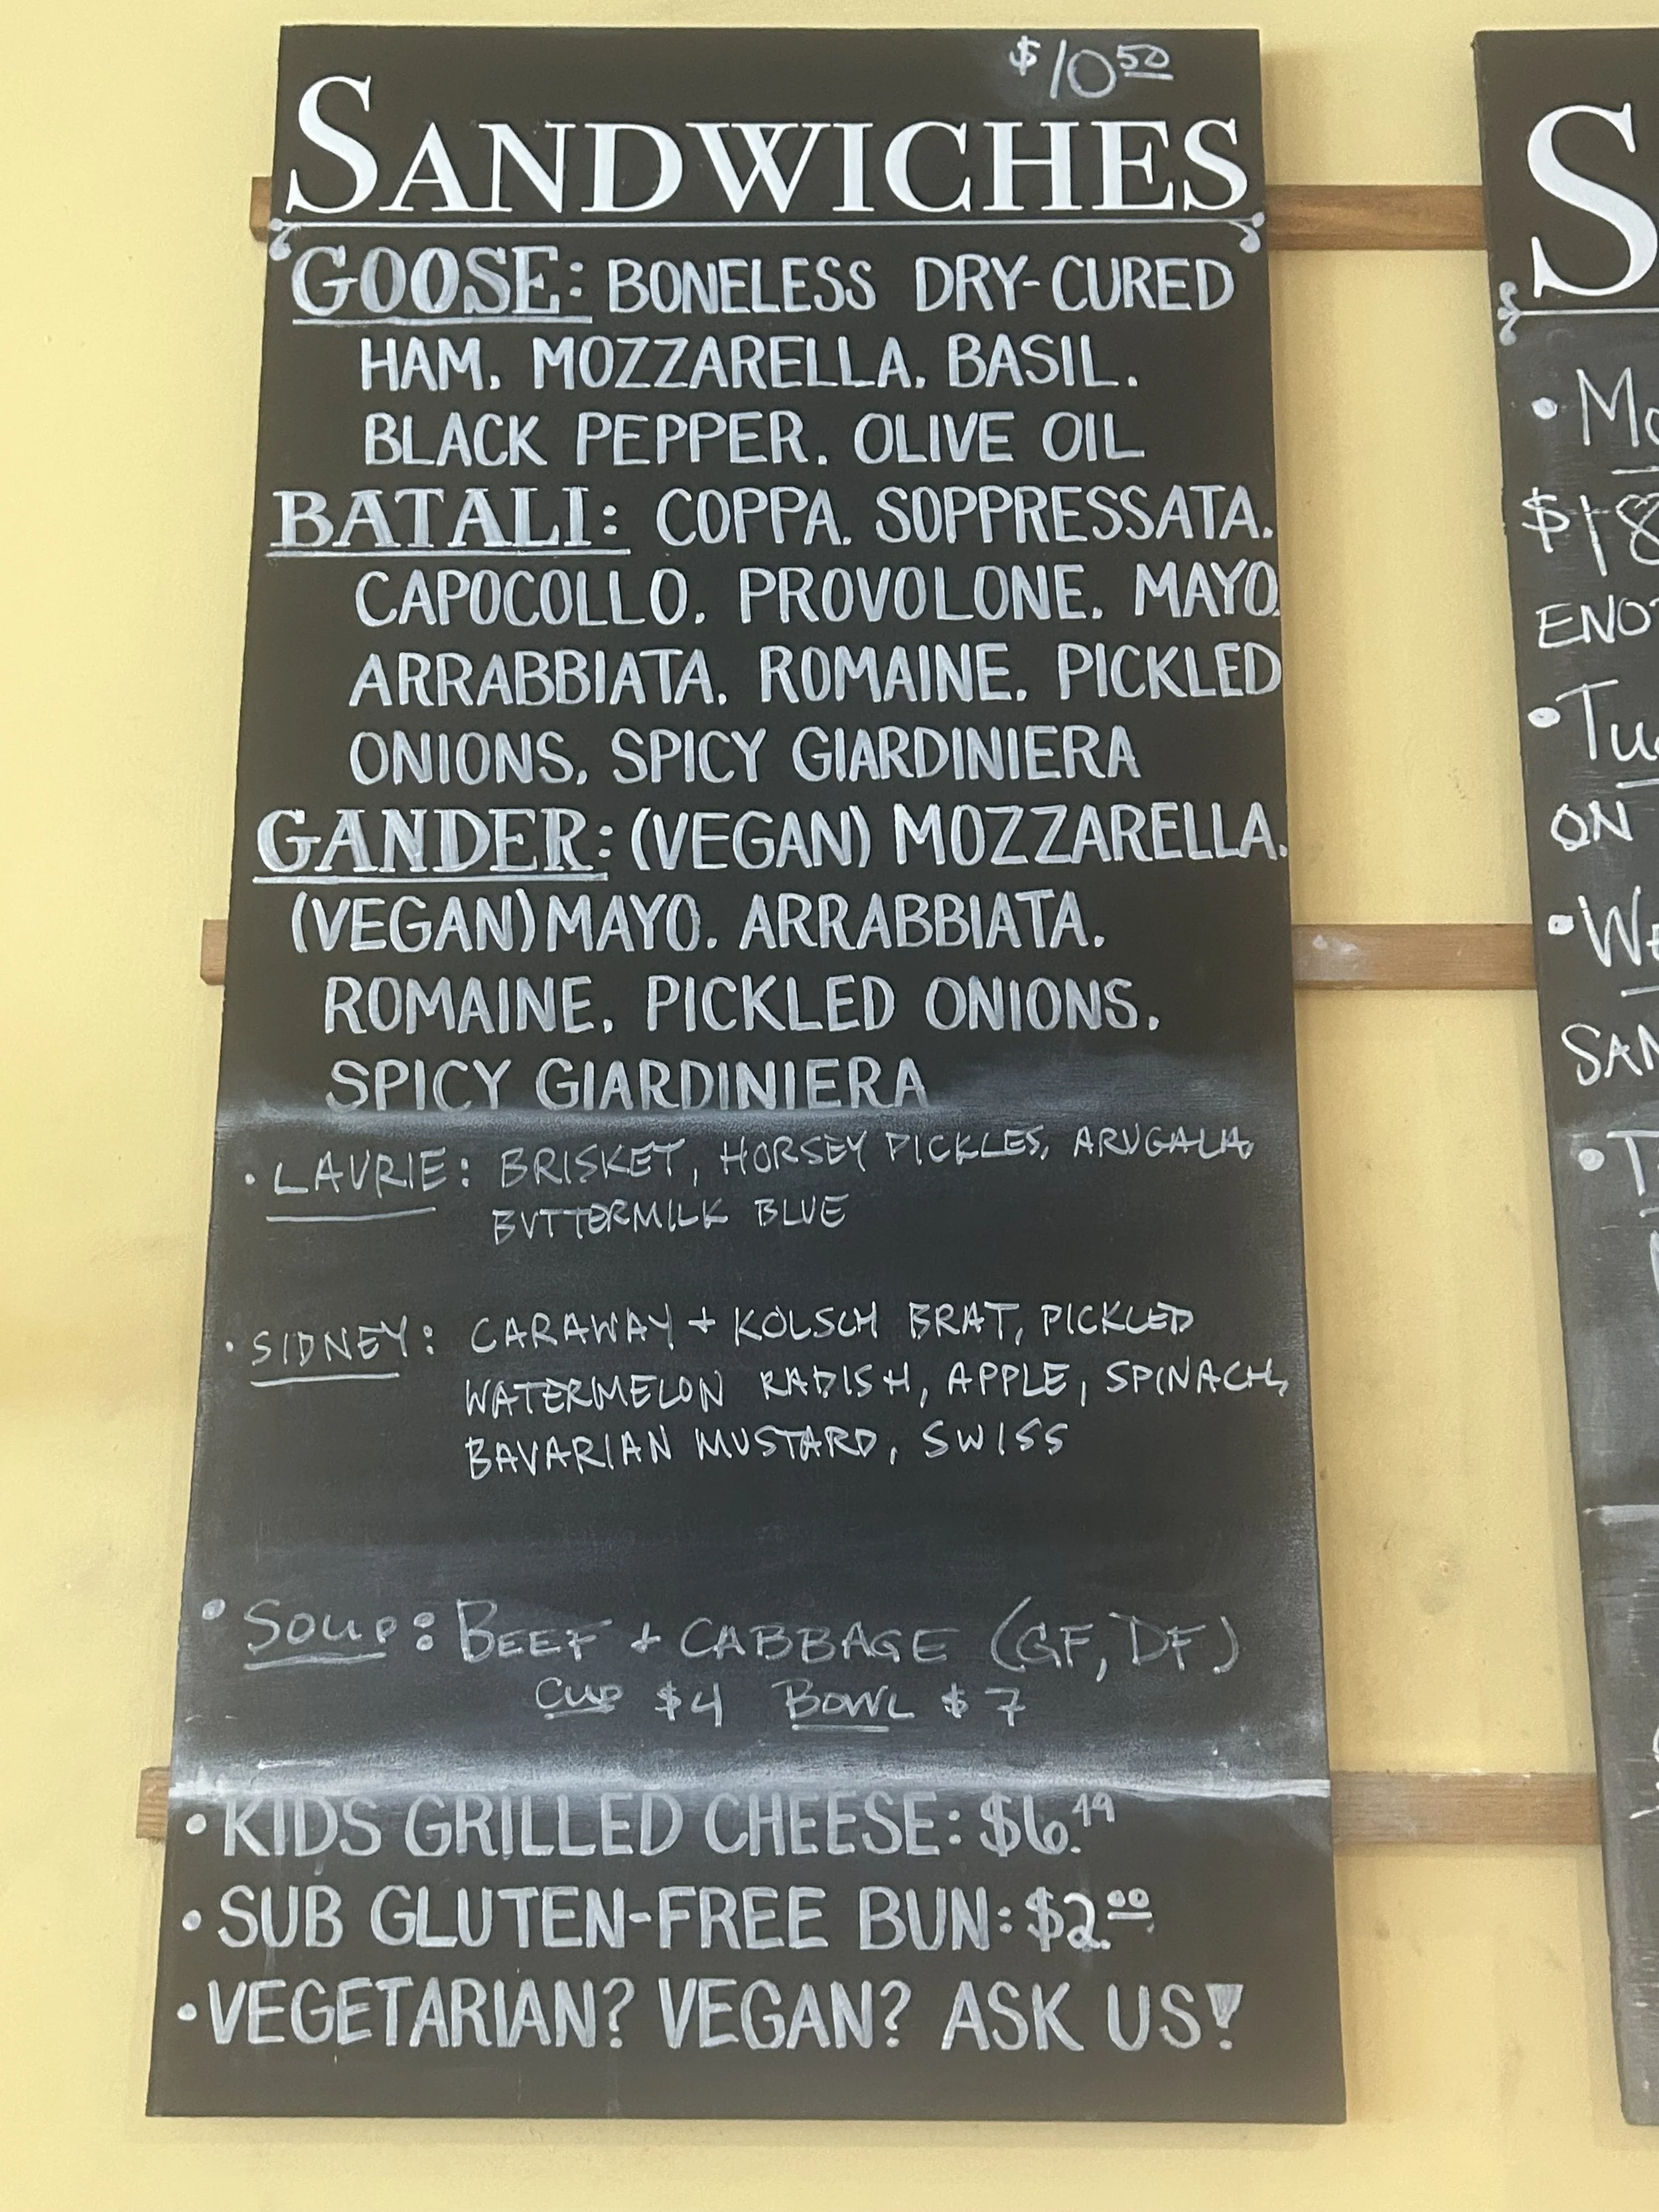 $10.50
SANDWICHES
GOOSE: BONELESS DRY-CURED
HAM. MOZZARELLA. BASIL.
BLACK PEPPER. OLIVE OIL
BATALI: COPPA. SOPPRESSATA.
CAPOCOLLO. PROVOLONE. MAYO.
ARRABBIATA. ROMAINE. PICKLED
ONIONS. SPICY GIARDINIERA
GANDER: (VEGAN) MOZZARELLA.
(VEGAN) MAYO. ARRABBIATA.
ROMAINE. PICKLED ONIONS.
SPICY GIARDINIERA
• LAURIE: BRISKET, HORSEY PICKLES, ARUGALA,
BUTTERMILK BLUE
• SIDNEY: CARAWAY + KOLSCH BRAT, PICKLED
WATERMELON RADISH, APPLE, SPINACH,
BAVARIAN MUSTARD, SWISS
• SOUP: BEEF + CABBAGE (GF, DF)
CUP $4 BOWL $7
• KIDS GRILLED CHEESE: $6.49
• SUB GLUTEN-FREE BUN: $2.00
• VEGETARIAN? VEGAN? ASK US!
S
• Mo
$18
ENO
• Tu
ON
• WE
SAN
• T